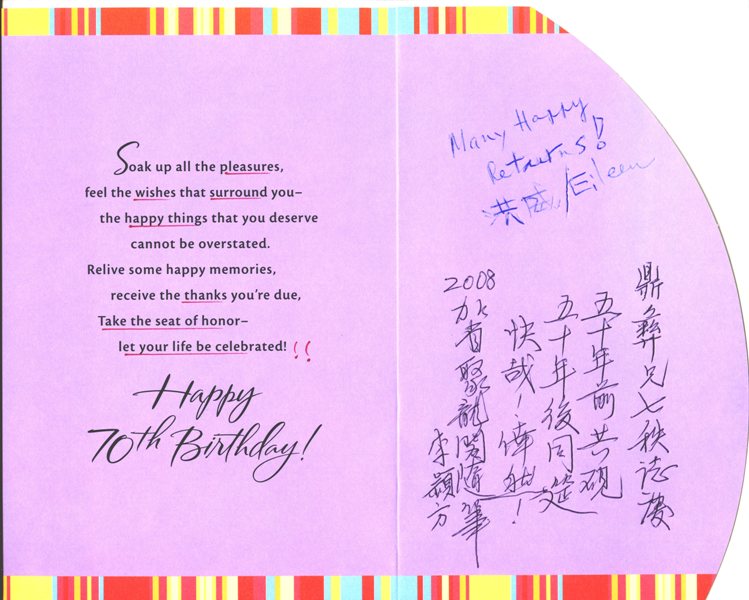 Soak up all the pleasures,
feel the wishes that surround you–
the happy things that you deserve
cannot be overstated.
Relive some happy memories,
receive the thanks you're due,
Take the seat of honor–
let your life be celebrated! !!
Happy
70th Birthday!
Many Happy
Returns!
洪威/Eileen
鼎彝兄七秩誌慶
五十年前共硯
五十年後同筵
快哉！
2008 加省聚龍閣隨筆
李穎方